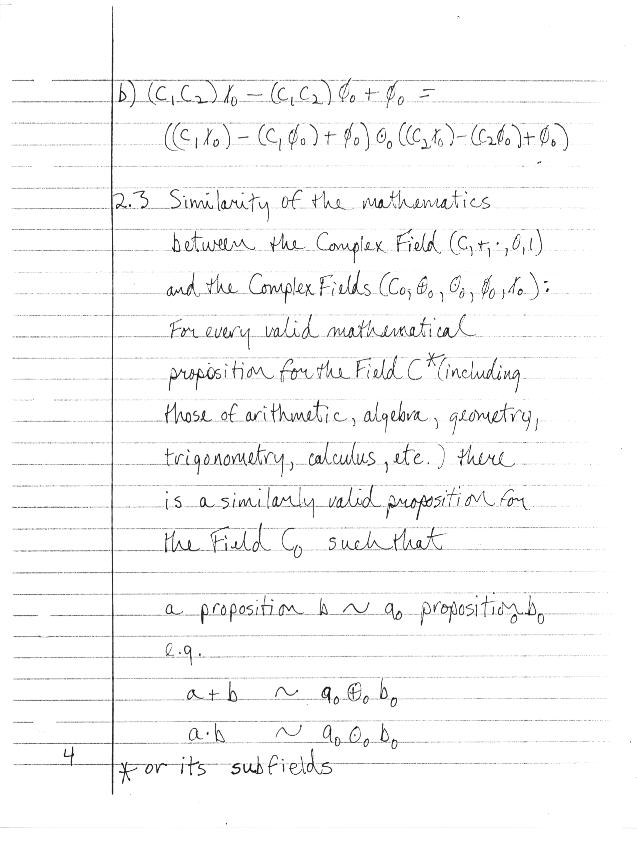 b) (C₁C₂)ɤ₀ − (C₁C₂)∅₀ + ∅₀ =
((C₁ɤ₀) − (C₁∅₀) + ∅₀) ⊙₀ ((C₂ɤ₀) − (C₂∅₀) + ∅₀)
2.3 Similarity of the mathematics
between the Complex Field (C, +, ·, 0, 1)
and the Complex Fields (C₀, ⊕₀, ⊙₀, ∅₀, ɤ₀):
For every valid mathematical
proposition for the Field C* (including
those of arithmetic, algebra, geometry,
trigonometry, calculus, etc.) there
is a similarly valid proposition for
the Field C₀ such that
a proposition b ~ a₀ proposition₀ b₀
e.g.
a + b ~ a₀ ⊕₀ b₀
a·b ~ a₀ ⊙₀ b₀
4
* or its subfields